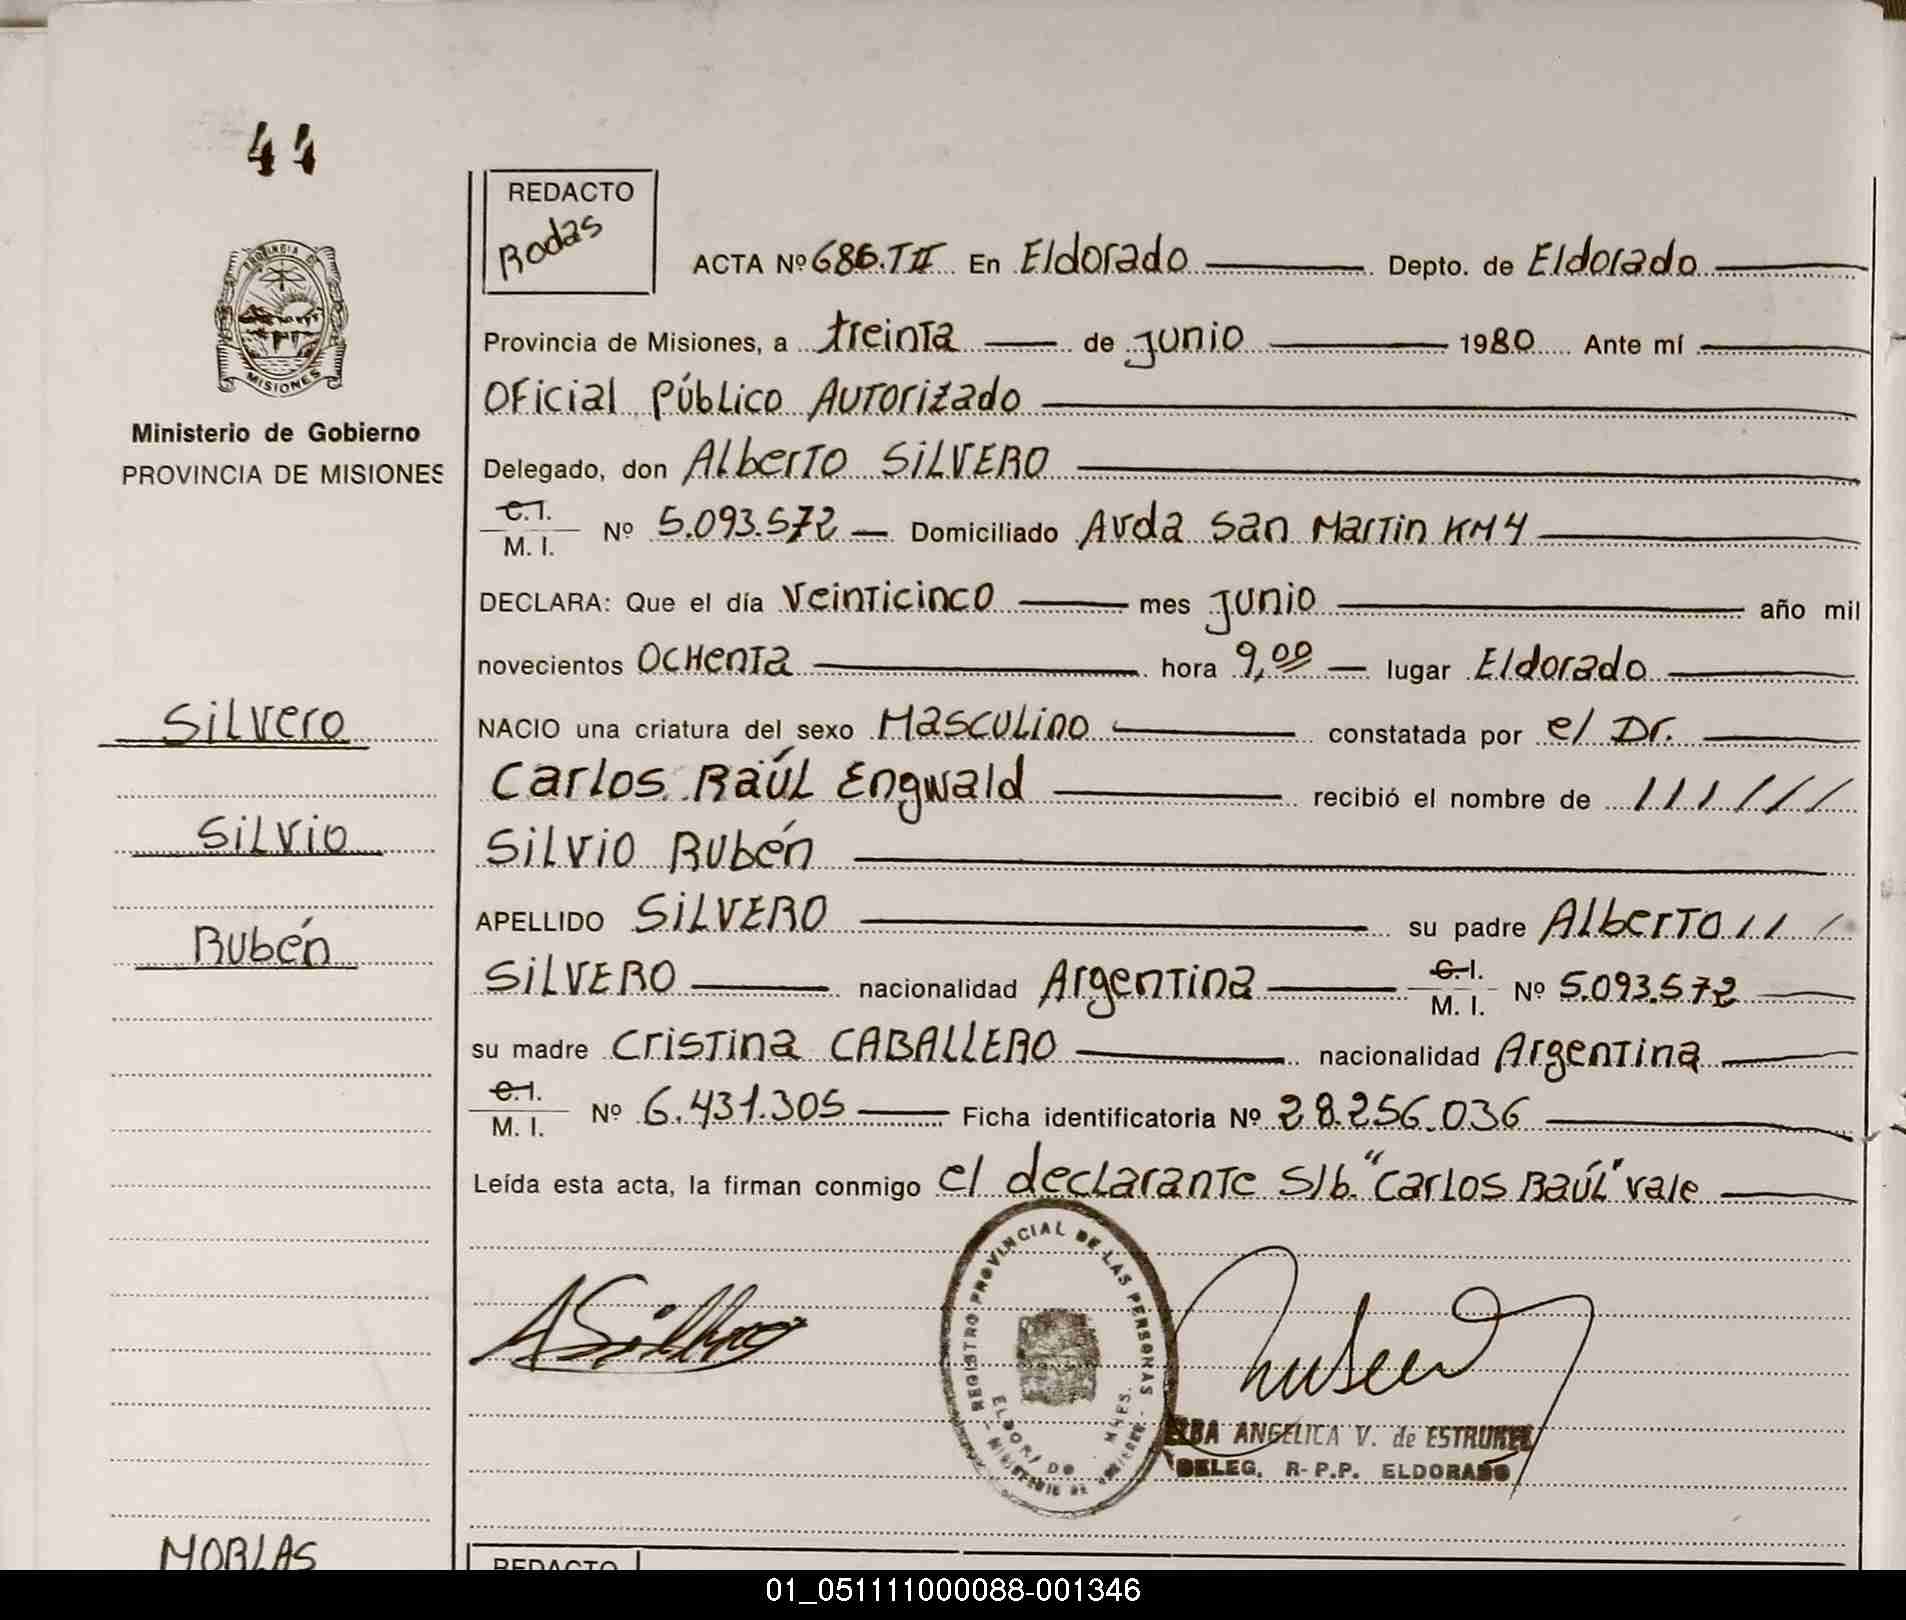 44
PROVINCIA DE
MISIONES
Ministerio de Gobierno
PROVINCIA DE MISIONES
Silvero
Silvio
Rubén
MOBLAS
REDACTO
Rodas
ACTA Nº 686.TII En Eldorado Depto. de Eldorado
Provincia de Misiones, a treinta de junio 1980 Ante mí
Oficial Público Autorizado
Delegado, don Alberto SILVERO
C.I.
M. I. Nº 5.093.572 Domiciliado Avda San Martin KM 4
DECLARA: Que el día Veinticinco mes junio año mil
novecientos Ochenta hora 9,00 lugar Eldorado
NACIO una criatura del sexo Masculino constatada por el Dr.
Carlos Raúl Engwald recibió el nombre de //////
Silvio Rubén
APELLIDO SILVERO su padre Alberto ///
SILVERO nacionalidad Argentina C.I.
M. I. Nº 5.093.572
su madre Cristina CABALLERO nacionalidad Argentina
C.I.
M. I. Nº 6.431.305 Ficha identificatoria Nº 28.256.036
Leída esta acta, la firman conmigo el declarante S/b. "Carlos Raúl" vale
REGISTRO PROVINCIAL DE LAS PERSONAS
ELDORADO MNES.
ASilvero
ANGELICA V. de
DELEG. R-P.P. ELDORADO
REDACTO
01_051111000088-001346